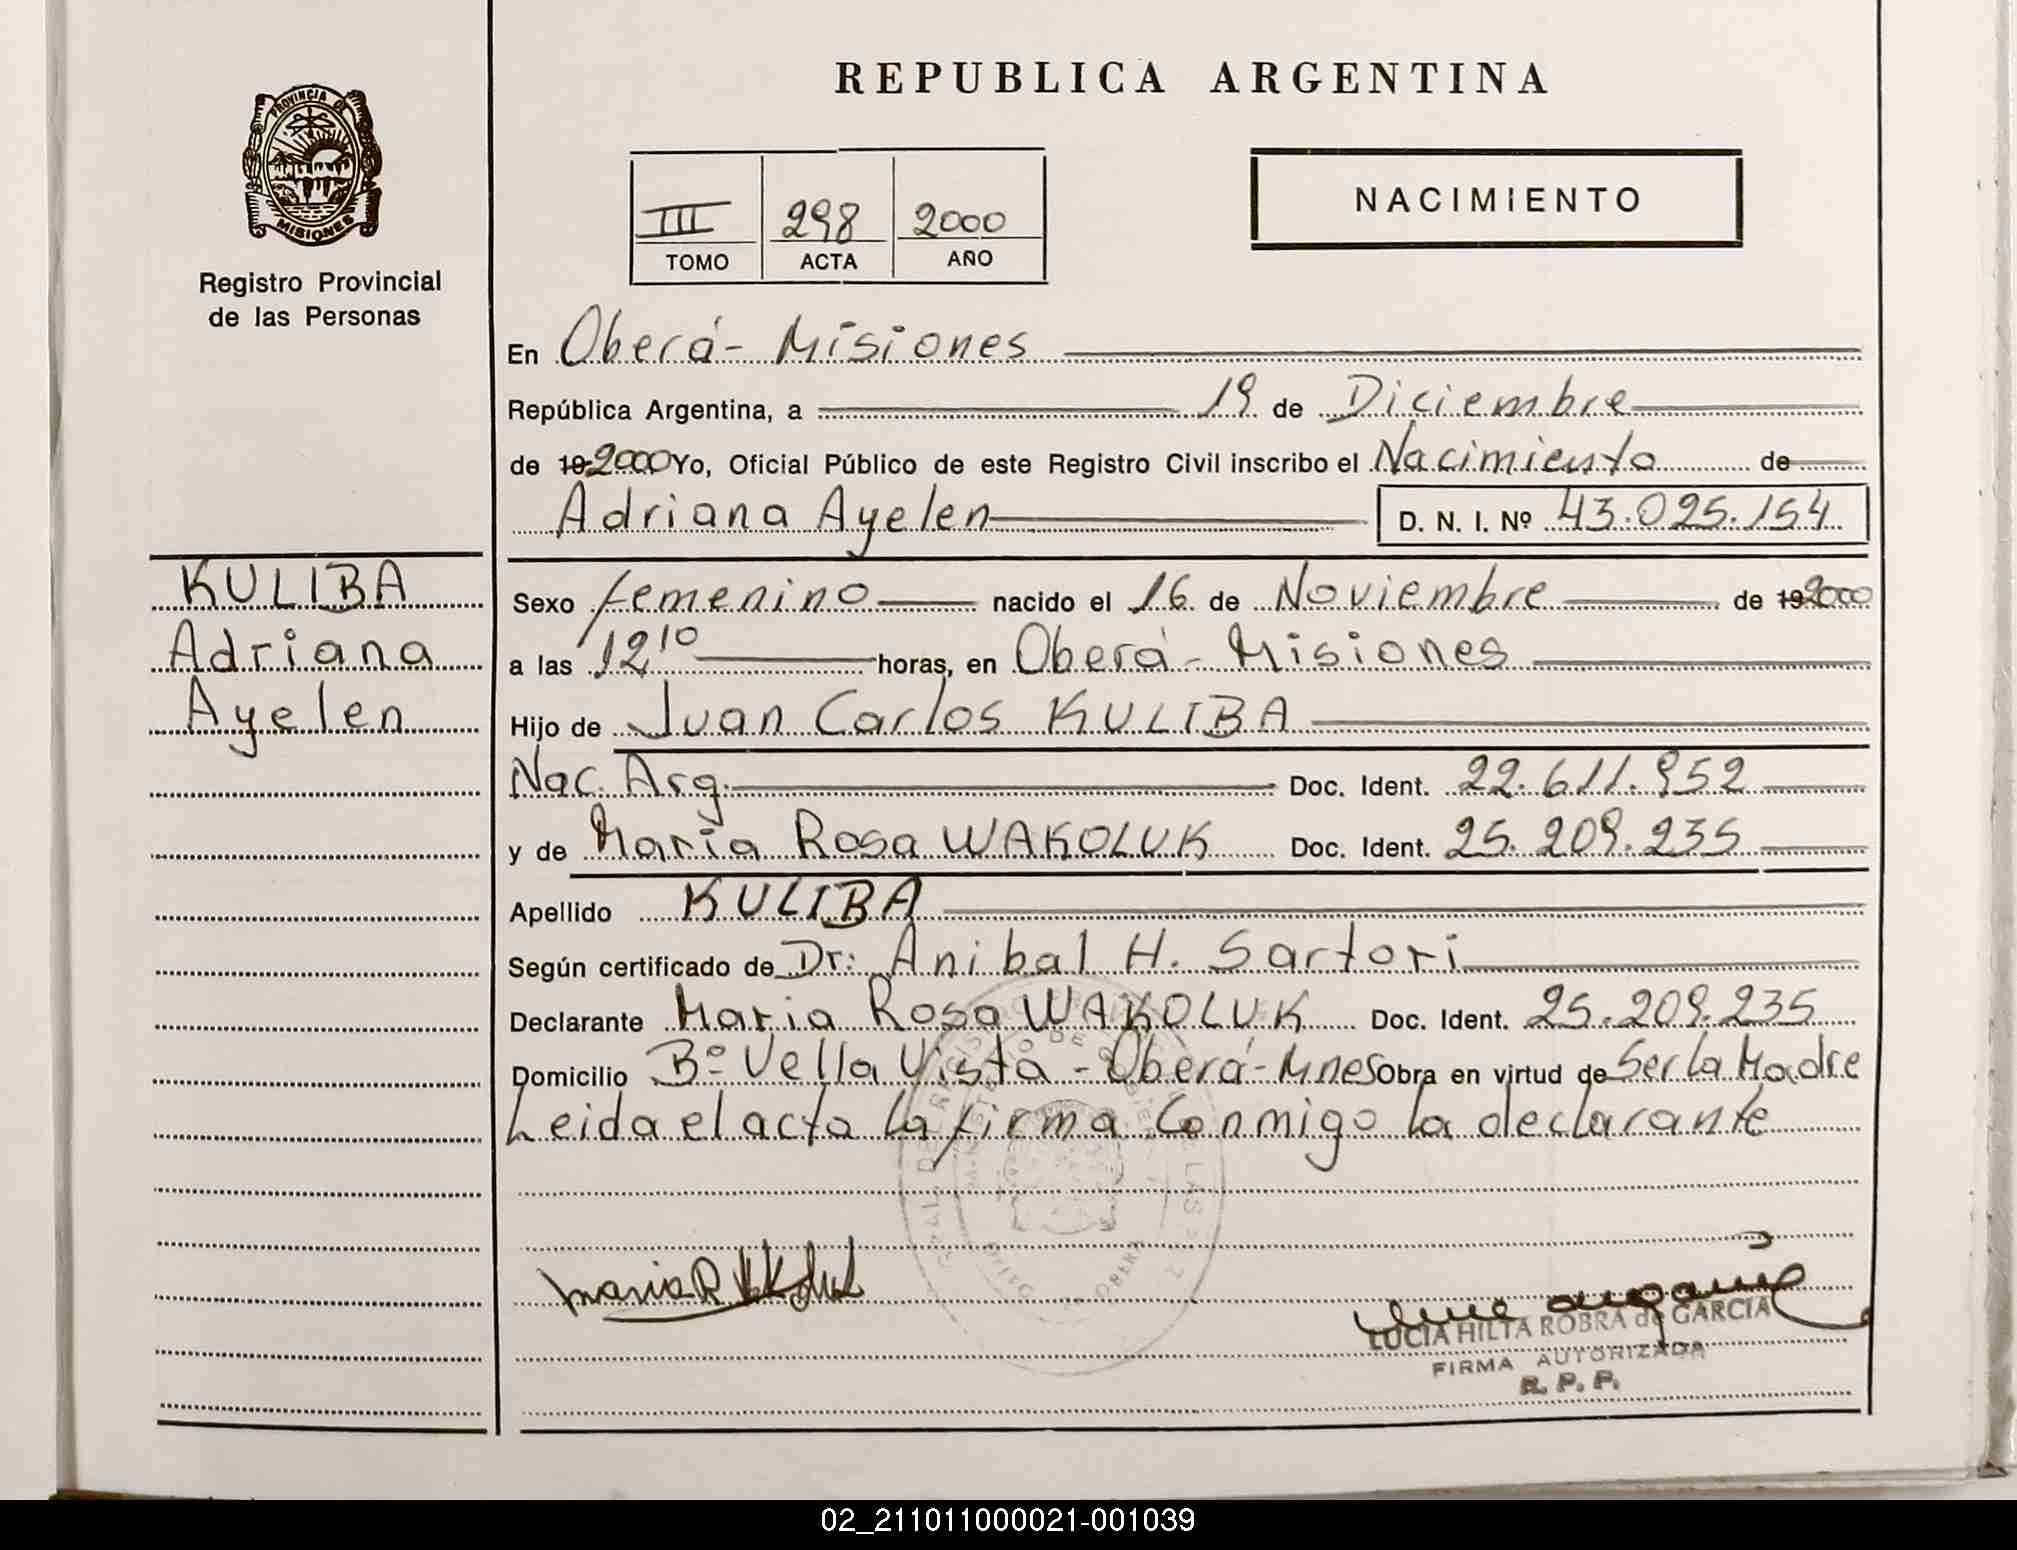 REPUBLICA ARGENTINA
PROVINCIA DE
MISIONES
Registro Provincial
de las Personas
III 298 2000
TOMO ACTA AÑO
NACIMIENTO
En Oberá - Misiones
República Argentina, a 19 de Diciembre
de 19 2000 Yo, Oficial Público de este Registro Civil inscribo el Nacimiento de
Adriana Ayelen D. N. I. Nº 43.025.154
KULIBA
Adriana
Ayelen
Sexo femenino nacido el 16 de Noviembre de 19 2000
a las 12 10 horas, en Oberá - Misiones
Hijo de Juan Carlos KULIBA
Nac. Arg. Doc. Ident. 22.611.952
y de Maria Rosa WAKOLUK Doc. Ident. 25.209.235
Apellido KULIBA
Según certificado de Dr: Anibal H. Sartori
Declarante Maria Rosa WAKOLUK Doc. Ident. 25.209.235
Domicilio Bº Vella Vista - Oberá - Mnes Obra en virtud de Ser la Madre
Leida el acta la firma Conmigo la declarante
Maria R
LUCIA HILTA ROBRA de GARCIA
FIRMA AUTORIZADA
R. P. P.
02_211011000021-001039